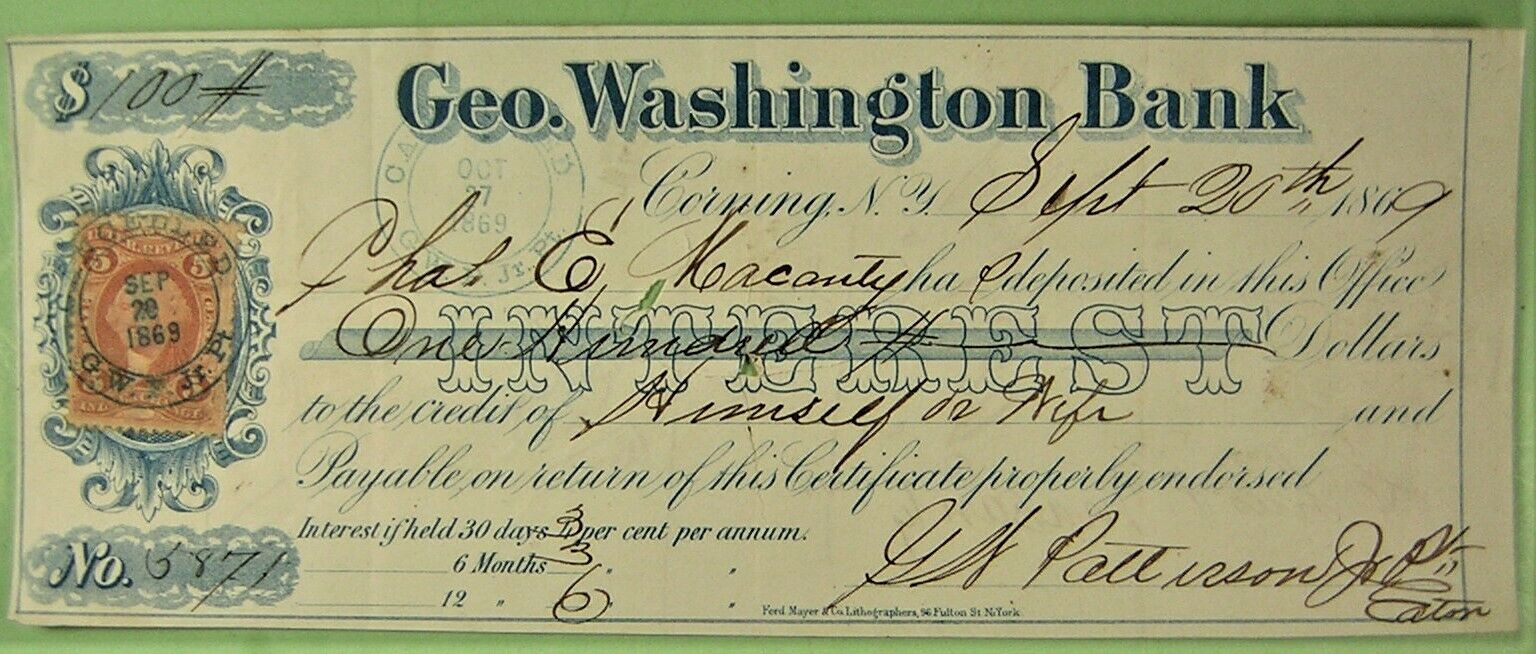 $ 100
Geo. Washington Bank
CANCELLED
OCT
27
1869
G.W.P. Jr. Pt.
Corning, N.Y. Sept 20th 1869
Chas. E. Macanty has deposited in this Office
One Hundred Dollars
INTEREST
to the credit of Himself or Wife and
Payable on return of this Certificate properly endorsed
Interest if held 30 days 3 per cent per annum.
6 Months 3 " "
12 " 6 " "
G W Patterson Jr Pt
Eaton
Ferd Mayer & Co. Lithographers, 96 Fulton St N. York
5 5
SEP
20
1869
G.W. Jr. Pt.
No. 5871